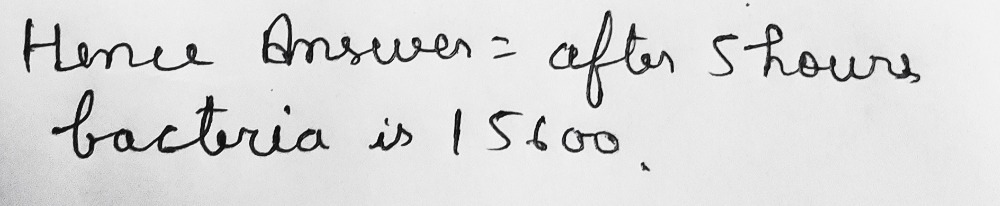 Hence Answer = after 5 hours
bacteria is 15600.